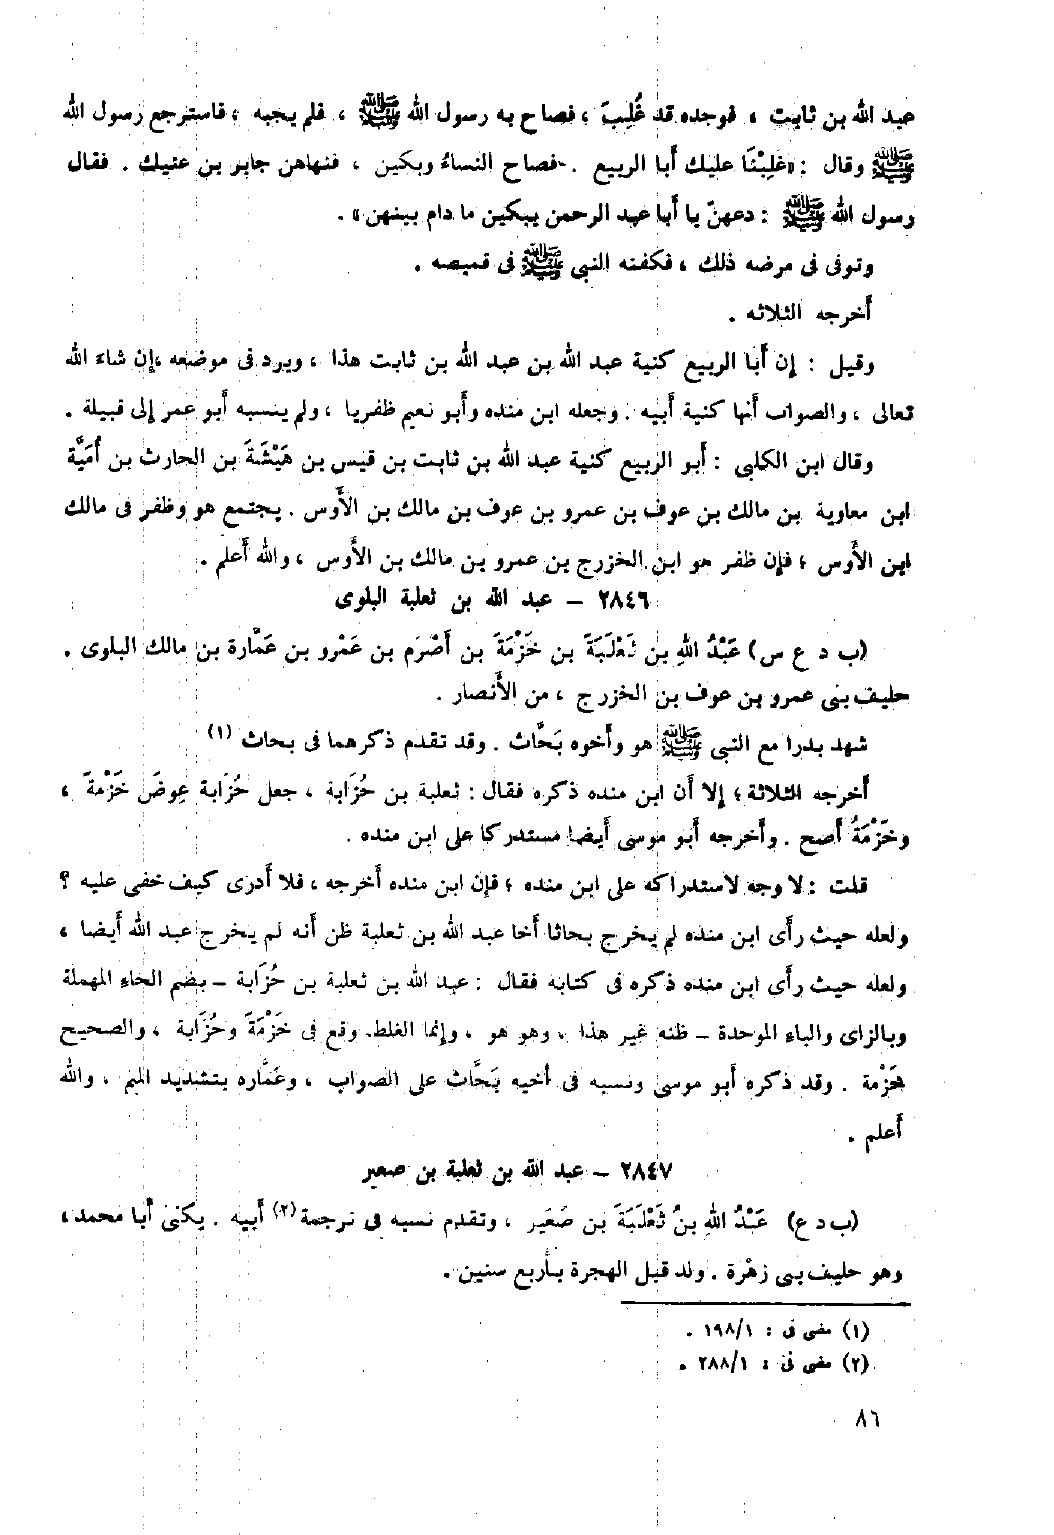 عبد الله بن ثابت ، فوجده قد غُلِبَ ، فصاح به رسول الله ﷺ ، فلم يجبه ، فاسترجع رسول الله
ﷺ وقال : «غلِبْنَا عليك أبا الربيع . فصاح النساءُ وبكين ، فنهاهن جابر بن عتيك . فقال
رسول الله ﷺ : دعهنّ يا أبا عبد الرحمن يبكين ما دام بينهن » .
وتوفى فى مرضه ذلك ، فكفنه النبى ﷺ فى قميصه .
أخرجه الثلاثه .
وقيل : إن أبا الربيع كنية عبد الله بن عبد الله بن ثابت هذا ، ويرد فى موضعه ،إن شاء الله
تعالى ، والصواب أنها كنية أبيه . وجعله ابن منده وأبو نعيم ظفريا ، ولم ينسبه أبو عمر إلى قبيلة .
وقال ابن الكلبى : أبو الربيع كنية عبد الله بن ثابت بن قيس بن هَيْشَةَ بن الحارث بن أُمَيَّة
ابن معاوية بن مالك بن عوف بن عمرو بن عوف بن مالك بن الأَوس . يجتمع هو وظفر فى مالك
ابن الأَوس ؛ فإن ظفر هو ابن الخزرج بن عمرو بن مالك بن الأَوس ، والله أعلم .
٢٨٤٦ – عبد الله بن ثعلبة البلوى
(ب د ع س) عَبْدُ اللهِ بن ثَعْلَبَةَ بن خَزْمَةَ بن أَصْرَم بن عَمْرو بن عَمَّارة بن مالك البلوى .
حليف بنى عمرو بن عوف بن الخزرج ، من الأَنصار .
شهد بدرا مع النبى ﷺ هو وأخوه بَحَّاث . وقد تقدم ذكرهما فى بحاث (١)
أخرجه الثلاثة ؛ إلا أن ابن منده ذكره فقال : ثعلبة بن حُزَابة ، جعل حُزَابة عِوضَ خَزْمةَ ،
وخَزْمَةُ أصح . وأخرجه أبو موسى أيضا مستدركا على ابن منده .
قلت : لا وجه لاستدراكه على ابن منده ؛ فإن ابن منده أخرجه ، فلا أدرى كيف خفى عليه ؟
ولعله حيث رأى ابن منده لم يخرج بحاثا أخا عبد الله بن ثعلبة ظن أنه لم يخرج عبد الله أيضا ،
ولعله حيث رأى ابن منده ذكره فى كتابه فقال : عبد الله بن ثعلبة بن حُزَابة – بضم الحاء المهملة
وبالزاى والباء الموحدة – ظنه غير هذا ، وهو هو ، وإنما الغلط وقع فى خَزْمَةَ وحُزَابة ، والصحيح
خَزْمة . وقد ذكره أبو موسى ونسبه فى أخيه بَحَّاث على الصواب ، وعَمَّاره بتشديد الميم . والله
أعلم .
٢٨٤٧ – عبد الله بن ثعلبة بن صعير
(ب د ع) عَبْدُ اللهِ بنُ ثَعْلَبَةَ بن صَعَير ، وتقدم نسبه فى ترجمة (٢) أبيه . يكنى أبا محمد ،
وهو حليف بنى زهْرة . ولد قبل الهجرة بأربع سنين .
(١) مضى فى : ١٩٨/١ .
(٢) مضى فى : ٢٨٨/١ .
٨٦